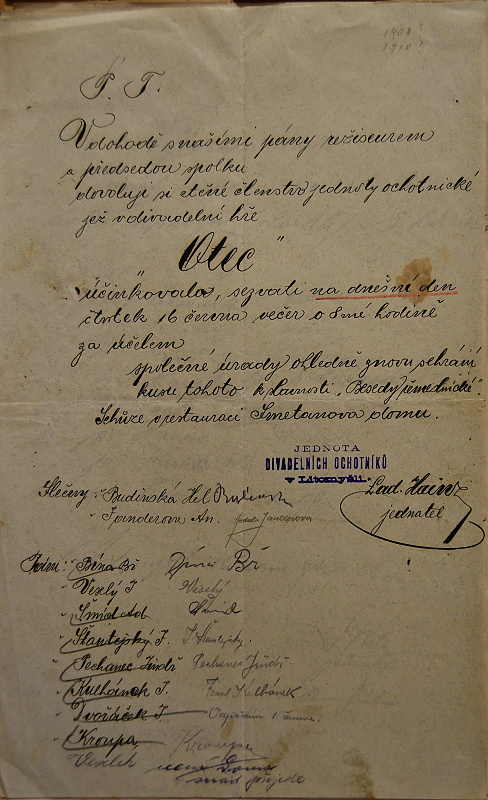 1908?
1910?
P. T.
V dohodě s našimi pány režiseurem
a předsedou spolku
dovoluji si ctěné členstvo jednoty ochotnické
jež v divadelní hře
"Otec"
účinkovala, sezvati na dnešní den
čtvrtek 16 června večer o 8mé hodině
za účelem
společné úrady ohledně znovu sehrání
kusu tohoto k slavnosti „Besedy řemeslnické“.
Schůze v restauraci Smetanova domu.
JEDNOTA
DIVADELNÍCH OCHOTNÍKŮ
v Litomyšli.
Lad. Hainz
jednatel
Slečny: Budinská Hel.
" An.
Páni: Bína Bř Bř
" Veselý J Veselý
" Šmíd Ad Šmíd
" Šlantejský J.
" Pechanec Jindř Pechanec Jindř.
" Kulhánek J. Kulhánek
" Dvořáček J
" Kroupa Kroupa
není doma
snad přijede